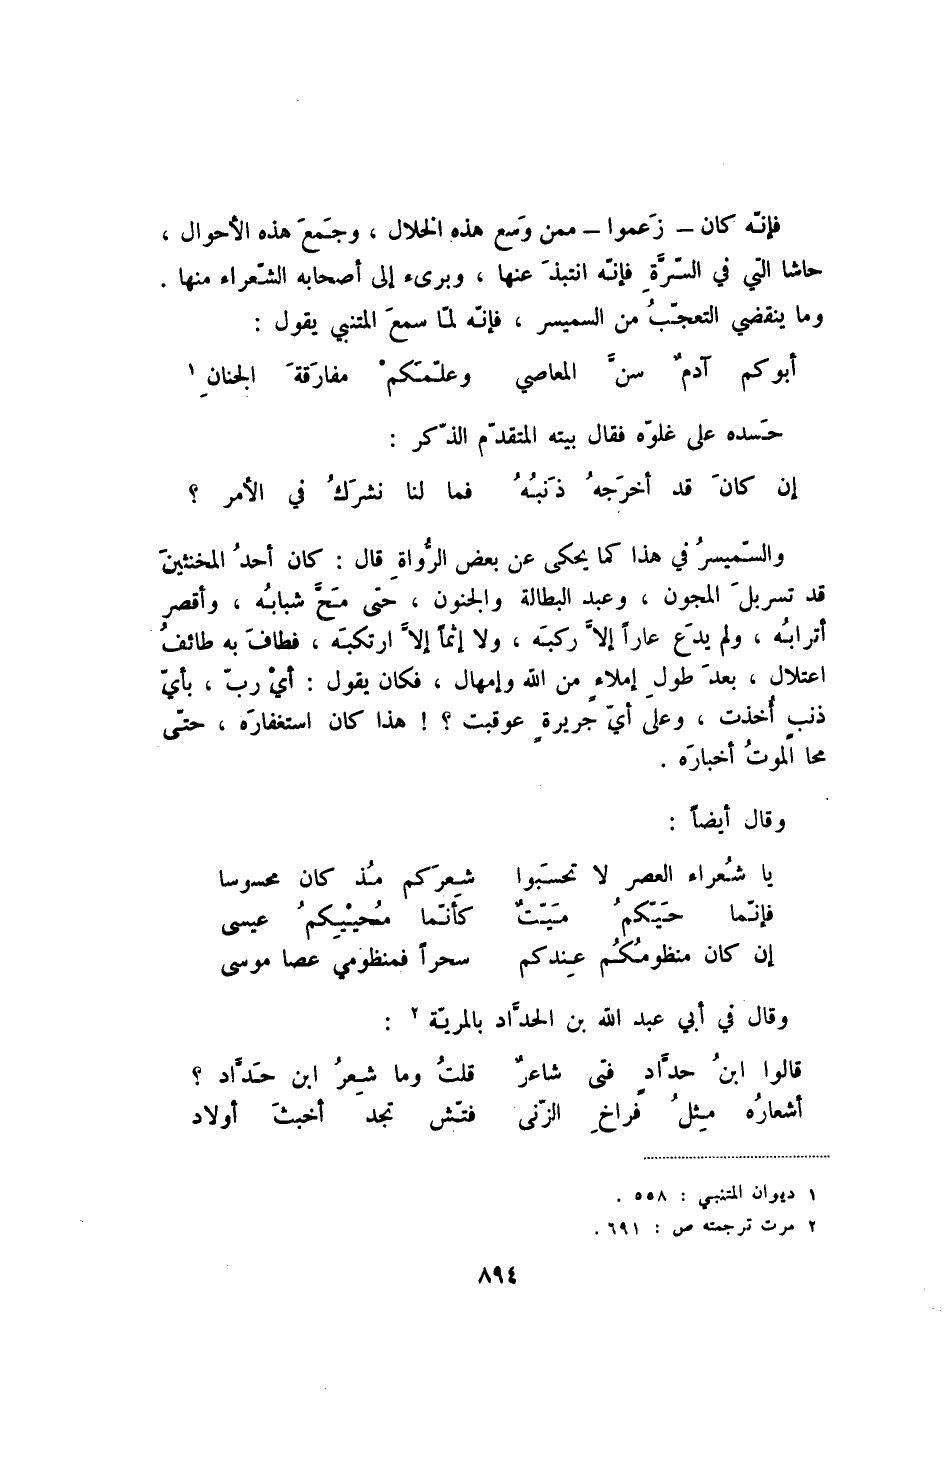 فإنّه كان – زَعموا – ممن وَسع هذه الخلال ، وجَمعَ هذه الأحوال ،
حاشا التي في السّرَّةِ فإنّه انتبذَ عنها ، وبرىء إلى أصحابه الشّعراء منها .
وما ينقضي التعجّبُ من السميسر ، فإنّه لمّا سمعَ المتنبي يقول :
أبوكم آدمٌ سنَّ المعاصي وعلّمَكمْ مفارَقةَ الجنانِ ١
حَسده على غلوّه فقال بيته المتقدّم الذّكر :
إن كانَ قد أخرَجهُ ذَنبُهُ فما لنا نشرَكُ في الأمر ؟
والسّميسرُ في هذا كما يحكى عن بعض الرُّواةِ قال : كان أحدُ المخنثينَ
قد تسربلَ المجون ، وعبد البطالة والجنون ، حتى مَحَّ شبابُه ، وأقصر
أترابُه ، ولم يدَع عاراً إلاَّ ركبَه ، ولا إثماً إلاَّ ارتكبَه ، فطافَ به طائفُ
اعتلالٍ ، بعدَ طولِ إملاءٍ من الله وإمهال ، فكان يقول : أيْ ربّ ، بأيّ
ذنبٍ أُخذت ، وعلى أيّ جريرةٍ عوقبت ؟ ! هذا كان استغفارَه ، حتّى
محا الموتُ أخبارَه .
وقال أيضاً :
يا شُعراء العصر لا تحسَبوا شِعرَكم مُذ كان محسوسا
فإنّما حَيّكمُ مَيّتٌ كأنّما مُحيْيِكمُ عيسى
إن كان منظومُكُم عِندكم سحراً فمنظومي عصا موسى
وقال في أبي عبد الله بن الحدَّاد بالمريّة ٢ :
قالوا ابنُ حدَّادٍ فتى شاعرٌ قلتُ وما شِعرُ ابن حَدَّاد ؟
أشعارُه مِثلُ فراخِ الزّنى فتّش تجد أخبثَ أولاد
١ ديوان المتنبي : ٥٥٨ .
٢ مرت ترجمته ص : ٦٩١ .
٨٩٤